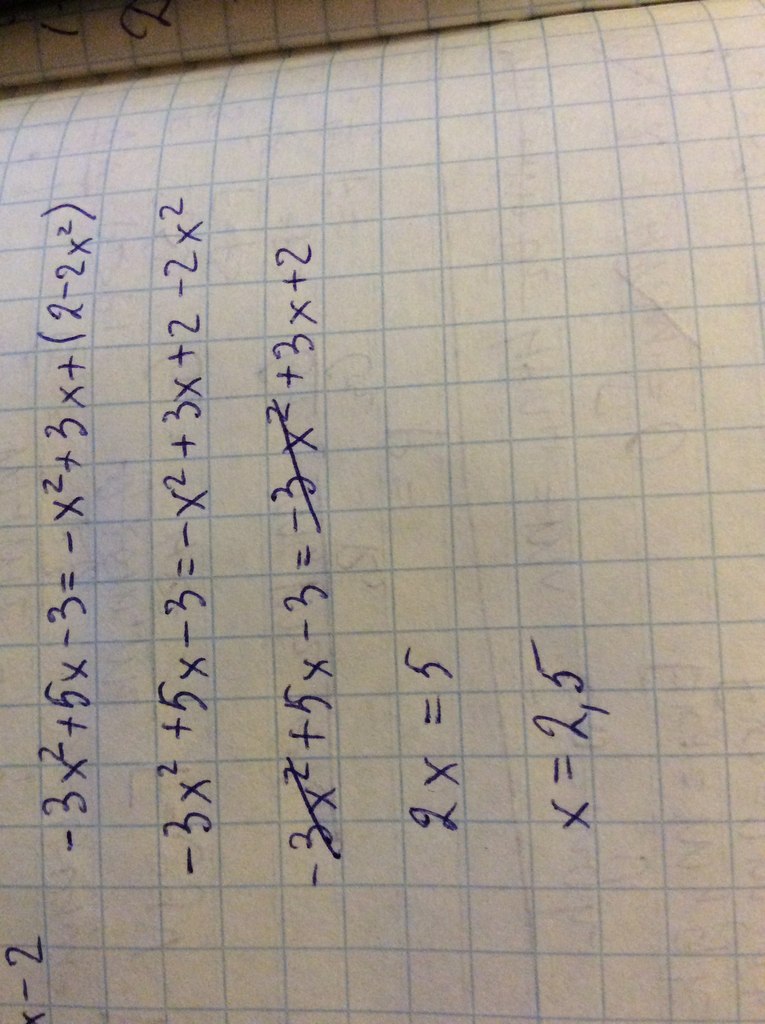 x-2
-3x²+5x-3=-x²+3x+(2-2x²)
-3x²+5x-3=-x²+3x+2-2x²
-3x²+5x-3=-3x²+3x+2
2x=5
x=2,5